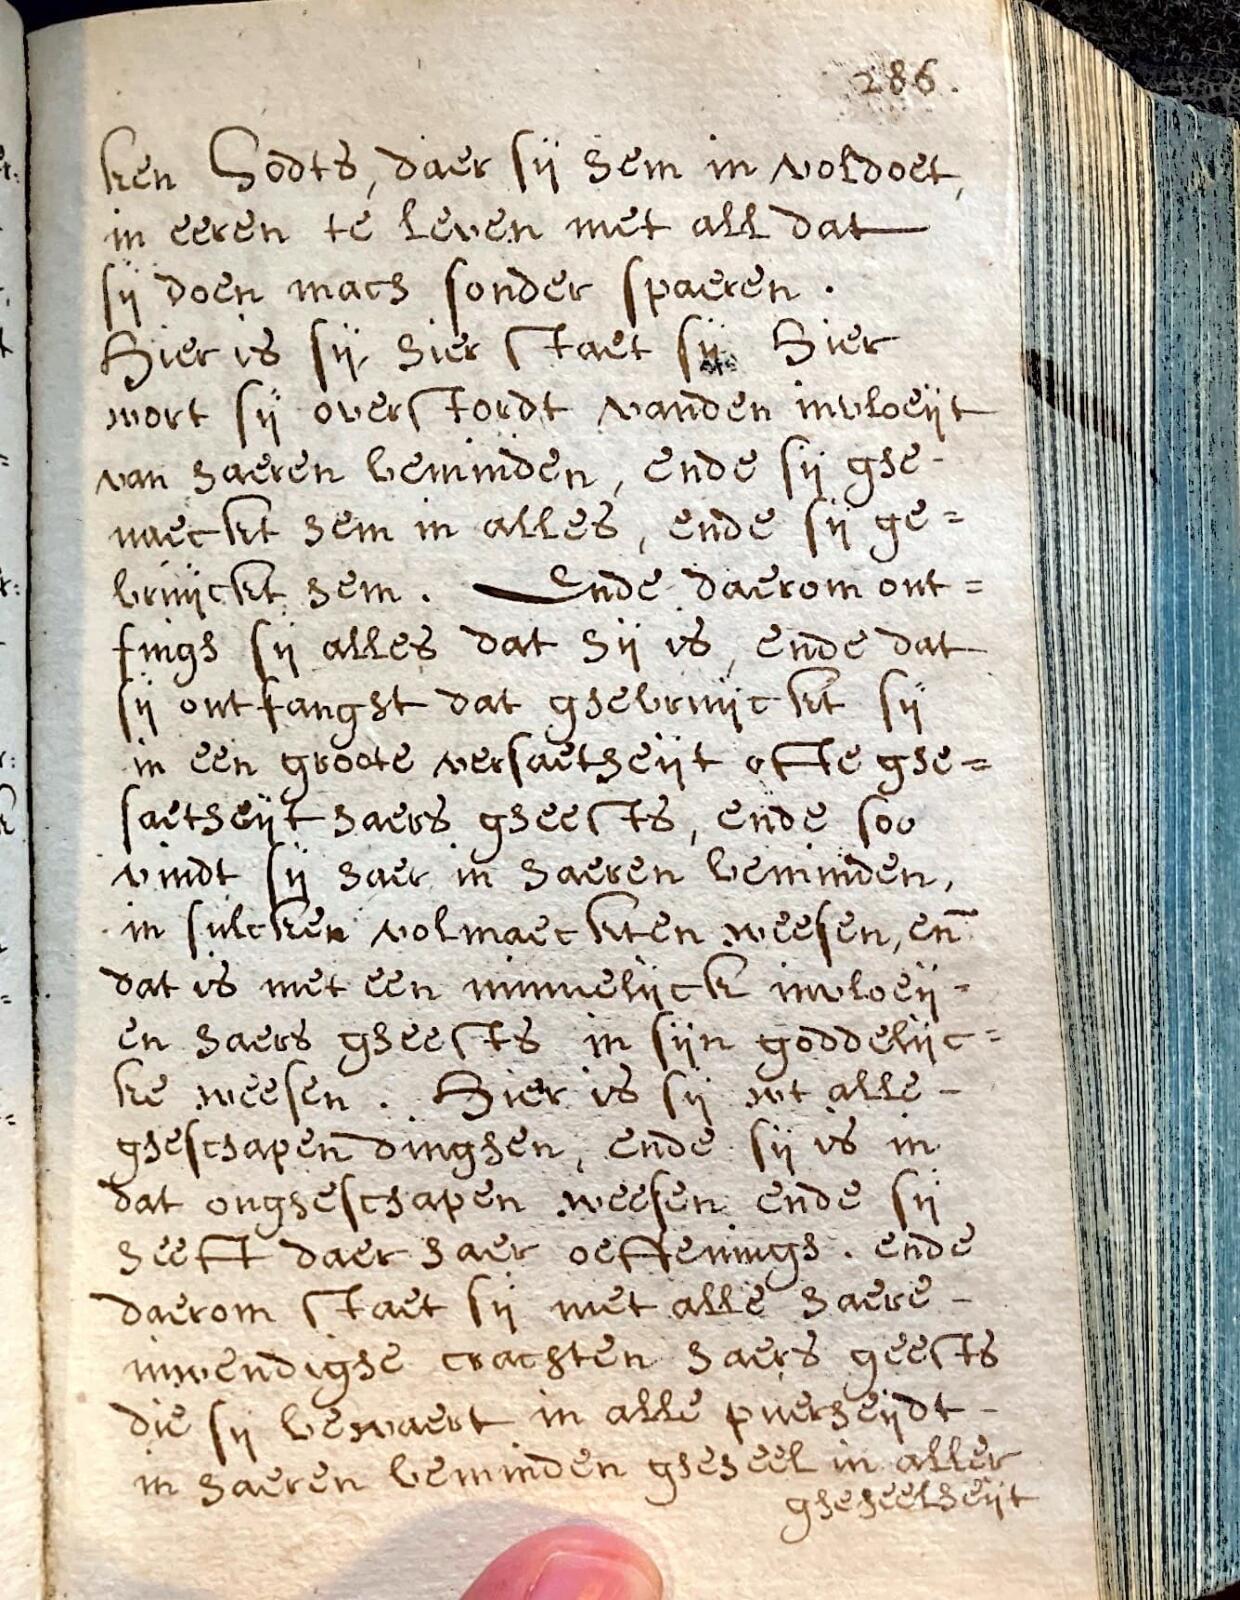 286.
ken Godts, daer sij hem in voldoet,
in eeren te leven met all dat
sij doen mach sonder spaeren.
Hier is sij, hier staet sij Hier
wort sij overstordt vanden invloeijt
van haeren beminden, ende sij ghe-
naeckt hem in alles, ende sij ge=
bruijckt hem. Ende daerom ont=
fingh sij alles dat hij is, ende dat
sij ontfanght dat ghebruijckt sij
in een groote versaetheijt ofte ghe=
saetheijt haers gheests, ende soo
vindt sij haer in haeren beminden,
in sulcken volmaeckten weesen, en̄
dat is met een minnelijck invloeij=
en haers gheests in sijn goddelijc=
ke weesen. Hier is sij wt alle-
gheschapen dinghen, ende sij is in
dat ongheschapen weesen ende sij
heeft daer haer oeffeningh. ende
daerom staet sij met alle haere-
inwendighe crachten haers geests
die sij bewaert in alle puerheijdt-
in haeren beminden gheheel in aller
gheheelheijt